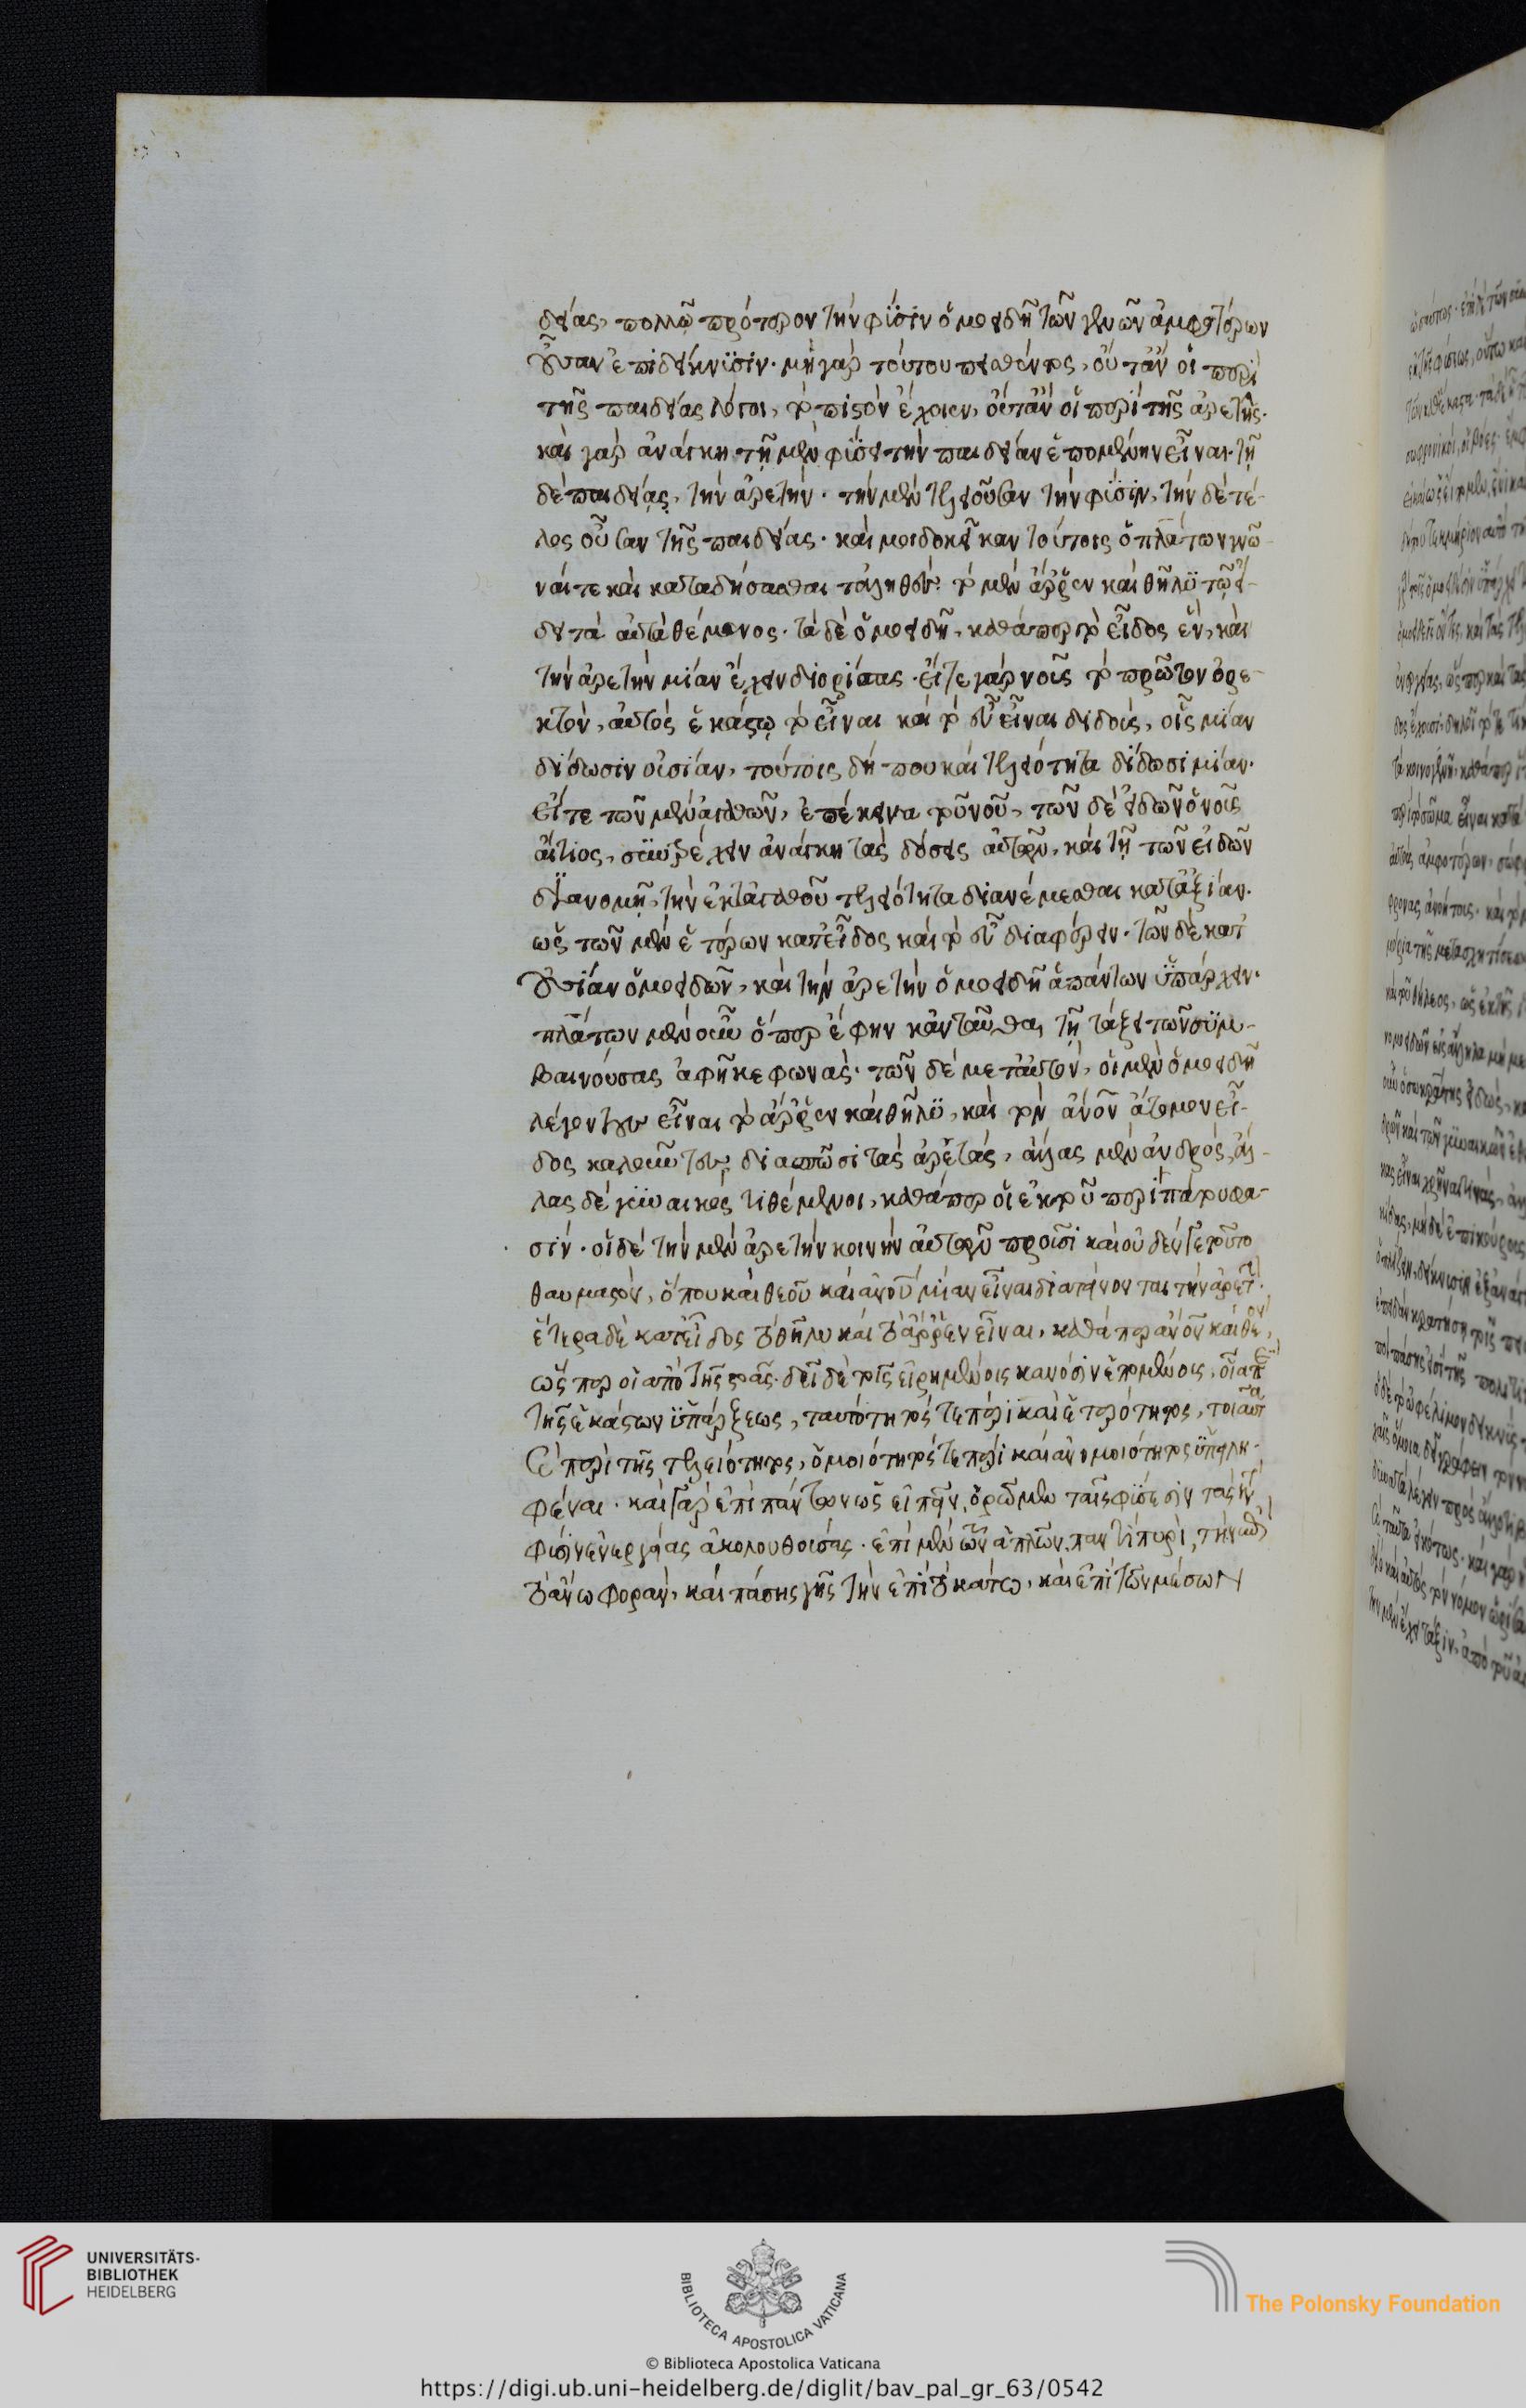 δείας, πολλῷ πρότερον τὴν φύσιν ὁμοειδῆ τῶν γενῶν ἀμφοτέρων
οὖσαν ἐπιδείκνυσιν. μὴ γὰρ τούτου πεισθέντος, οὔτ' ἂν οἱ περὶ
τῆς παιδείας λόγοι, τὸ πιστὸν ἔχοιεν, οὔτ' ἂν οἱ περὶ τῆς ἀρετῆς.
καὶ γὰρ ἀνάγκη τῇ μὲν φύσει τὴν παιδείαν ἑπομένην εἶναι· τῇ
δὲ παιδείᾳ, τὴν ἀρετήν. τὴν μὲν τελειοῦσαν τὴν φύσιν, τὴν δὲ τέ-
λος οὖσαν τῆς παιδείας. καί μοι δοκεῖ κἀν τούτοις ὁ πλάτων γνῶ-
ναί τε καὶ καταδήσασθαι τἀληθές· τὸ μὲν ἄρρεν καὶ θῆλυ τῷ εἴ-
δει τὰ αὐτὰ θέμενος. τὰ δὲ ὁμοειδῆ, καθάπερ τὸ εἶδος ἕν, καὶ
τὴν ἀρετὴν μίαν ἔχειν διορίσας. εἴτε γὰρ νοῦς τὸ πρῶτον ὀρε-
κτόν, αὐτὸς ἑκάστῳ τὸ εἶναι καὶ τὸ εὖ εἶναι διδούς, οἷς μίαν
δίδωσιν οὐσίαν, τούτοις δή που καὶ τελειότητα δίδωσι μίαν.
εἴτε τῶν μὲν ἀγαθῶν, ἐπέκεινα τοῦ νοῦ, τῶν δὲ εἰδῶν ὁ νοῦς
αἴτιος, συντρέχειν ἀνάγκη τὰς δόσεις αὐτοῦ, καὶ τῇ τῶν εἰδῶν
διανομῇ, τὴν ἐκ τἀγαθοῦ τελειότητα διανέμεσθαι κατ' ἀξίαν.
ὡς τῶν μὲν ἑτέρων κατ' εἶδος καὶ τὸ εὖ διαφέρειν. τῶν δὲ κατ'
οὐσίαν ὁμοειδῶν, καὶ τὴν ἀρετὴν ὁμοειδῆ ἁπάντων ὑπάρχειν.
πλάτων μὲν οὖν ὅπερ ἔφην κἀνταῦθα, τῇ τάξει τῶν συμ-
βαινούσας ἀφῆκε φωνάς. τῶν δὲ μετ' αὐτόν, οἱ μὲν ὁμοειδῆ
λέγοντες εἶναι τὸ ἄρρεν καὶ θῆλυ, καὶ τὸν ἄνον ἄτομον εἶ-
δος καλοῦντες, διασπῶσι τὰς ἀρετάς, ἄλλας μὲν ἀνδρός, ἄλ-
λας δὲ γυναικὸς τιθέμενοι, καθάπερ οἱ ἐκ τοῦ περιπάτου φα-
σίν. οἱ δὲ τὴν μὲν ἀρετὴν κοινὴν αὐτοῦ προϊσι καὶ οὐδέν γε τοῦτο
θαυμαστόν, ὅπου καὶ θεοῦ καὶ ανοῦ μίαν εἶναι διατείνονται τὴν ἀρετ.
ἕτερα δὲ κατ' εἶδος τὸ θῆλυ καὶ τὸ ἄρρεν εἶναι, καθάπερ ανον καὶ θν,
ὥσπερ οἱ ἀπὸ τῆς στοᾶς. δεῖ δὲ τοῖς εἰρημένοις κανόσιν ἑπομένοις, οἷα περ
τῆς ἑκάστων ὑπάρξεως, ταυτότητός τε πέρι καὶ ἑτερότητος, τοιαῦτα
καὶ περὶ τῆς τελειότητος, ὁμοιότητός τε πέρι καὶ ἀνομοιότητος ὑπειλη-
φέναι. καὶ γὰρ ἐπὶ πάντων ὡς εἰπεῖν, ὁρῶμεν ταῖς φύσεσιν τὰς κατὰ
φύσιν ἐνεργείας ἀκολουθούσας. ἐπὶ μὲν τῶν ἁπλῶν, παντὶ πυρὶ, τὴν ἐπὶ
τὸ ἄνω φοράν, καὶ πάσης γῆς τὴν ἐπὶ τὸ κάτω, καὶ ἐπὶ τῶν μέσων
UNIVERSITÄTS-
BIBLIOTHEK
HEIDELBERG
BIBLIOTECA APOSTOLICA VATICANA
The Polonsky Foundation
© Biblioteca Apostolica Vaticana
https://digi.ub.uni-heidelberg.de/diglit/bav_pal_gr_63/0542